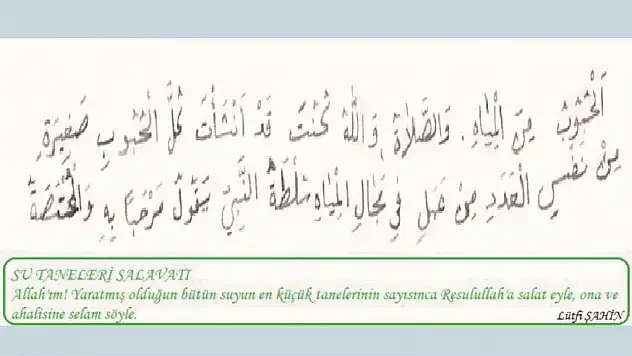 اَلْحُبُوبُ مِنَ الْمِيَاهِ. وَالصَّلَاةُ وَاللّٰهُ كُنْتَ قَدْ اَنْشَأْتَ كُلَّ الْحُبُوبِ صَغِيرَةٍ
مِنْ نَفْسِ الْعَدَدِ مِنْ عَمَلٍ فِي مَجَالِ الْمِيَاهِ سُلْطَةُ النَّبِيِّ يَقُولُ مَرْحَبًا بِهِ
SU TANELERİ SALAVATI
Allah'ım! Yaratmış olduğun bütün suyun en küçük tanelerinin sayısınca Resulullah'a salat eyle, ona ve
ahalisine selam söyle.
Lütfi ŞAHİN